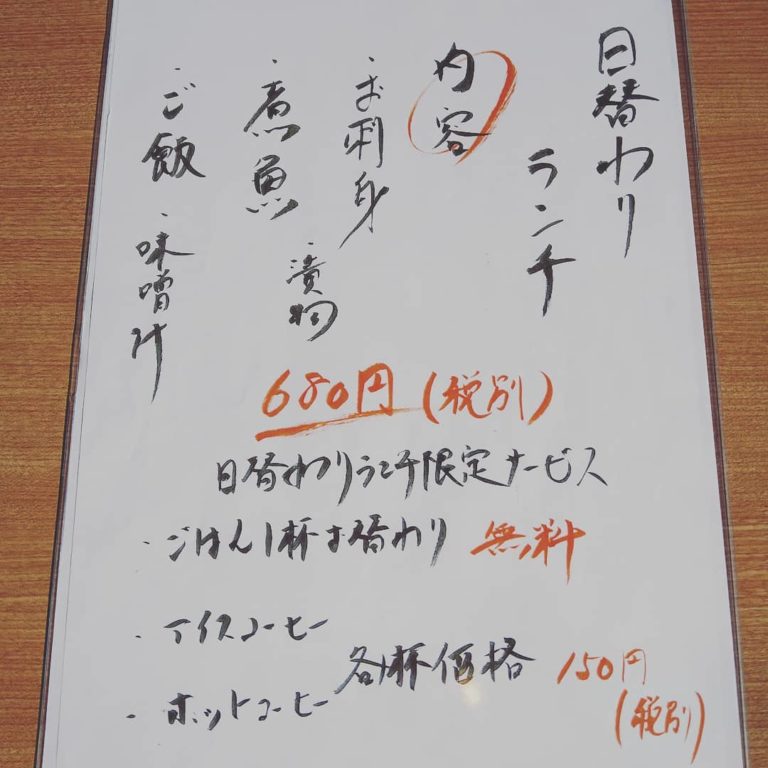 日替わり
ランチ
内容
・お刺身
・煮魚
・漬物
・ご飯
・味噌汁
680円(税別)
日替わりランチ限定サービス
・ごはん1杯お替わり 無料
・アイスコーヒー
・ホットコーヒー
各1杯価格 150円
(税別)